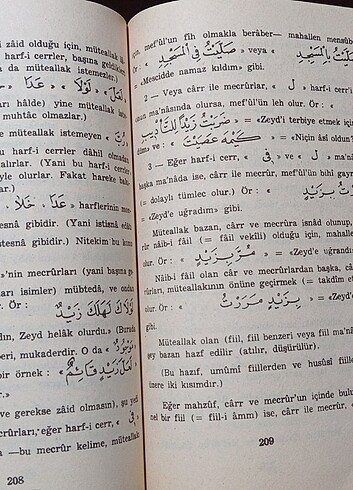 i zâid olduğu için, müteallak
i harf-i cerrler, başına geldikleri
da müteallak istemezler.)
« لَعَلَّ » « لَوْلَا » « عَدَا »
hâlde) yine müteallak iste
muhtâc olmazlar.)
müteallak istemeyen « رُبَّ »
harf-i cerrler dâhil olmadan
alırlar. (Yani bu harf-i cerrler
yle olurlar. Fakat hareke bakı-
« عَدَا . خَلَا » harflerinin mec-
esnâ gibidir. (Yani istisnâ edi
tesnâ gibidir). Nitekim bu kısım
»'nin mecrûrları (yani başına ge-
arı isimler) mübtedâ, ve ondan
. Ör : لَوْلَاكَ لَهَلَكَ زَيْدٌ
dın, Zeyd helâk olurdu.» (Burada
beri, mukadderdir. O da « مَوْجُودٌ »
bir örnek : « لَعَلَّ زَيْدٍ قَائِمٌ »
ve gerekse zâid olmasın), şu yedi
rûrları, eğer harf-i cerr,
— bu mecrûr kelime, müteallak
208
için, mef'ûl'un fîh olmakla berâber— mahallen mensûbdur
Ör : « صَلَّيْتُ فِي الْمَسْجِدِ » veya « صَلَّيْتُ بِالْمَسْجِدِ »
= «Mescidde namaz kıldım» gibi.
2 — Veya câr ile mecrûrlar, « لِ » harf-i cerri
unun ma'nâsında olursa, mef'ûl'un leh olur. Ör :
« ضَرَبْتُ زَيْدًا لِلتَّأْدِيبِ » = «Zeyd'i terbiye etmek için
dım» ve : « كَيْمَهْ عَصَيْتَ » = «Niçin âsî oldun?»
3 — Eğer harf-i cerr, « فِي » ve « لِ » ma'nâ
başka ma'nâda ise, câr ile mecrûr, mef'ûl'un bihi gayr
= dolaylı tümlec olur.) Ör : « مَرَرْتُ بِزَيْدٍ »
= «Zeyd'e uğradım» gibi.
Müteallak bazan, cârr ve mecrûra isnâd olunup,
rûr nâib-i fâil (= fâil vekîli) olduğu için, mahallen
olur. Ör : « مُرَّ بِزَيْدٍ » = «Zeyd'e uğrandı
Nâib-i fâil olan câr ve mecrûrlardan başka, câr
rûrları, müteallakının önüne geçirmek (= takdîm et
olur. Ör : « بِزَيْدٍ مَرَرْتُ » = «Zeyd'e uğradım
gibi.
Müteallak olan (fiil, fiil benzeri veya fiil ma'nâ
şey bazan hazf edilir (atılır, düşürülür).
(Bu hazıf, umûmî fiillerden ve husûsî fiillerden
üzere iki kısımdır.)
Eğer mahzûf, cârr ve mecrûr'un içinde bulunan
nel bir fiil (= fiil-i âmm) ise, cârr ile mecrûr,
209